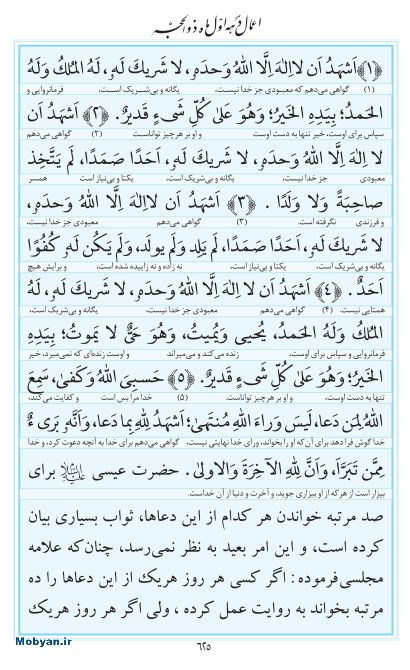 اعمال دههٔ اوّل ماه ذوالحجه
﴿١﴾ اَشهَدُ اَن لااِلٰهَ اِلَّا اللهُ وَحدَهُ، لا شَریكَ لَهُ، لَهُ المُلكُ وَلَهُ
(١) گواهی می‌دهم که معبودی جز خدا نیست، یگانه و بی‌شریک است، فرمانروایی و
الحَمدُ؛ بِیَدِهِ الخَیرُ؛ وَهُوَ عَلیٰ كُلِّ شَیءٍ قَدیرٌ. ﴿٢﴾ اَشهَدُ اَن
سپاس برای اوست، خیر تنها به دست اوست و او بر هرچیز تواناست (٢) گواهی می‌دهم
لا اِلٰهَ اِلَّا اللهُ وَحدَهُ، لا شَریكَ لَهُ، اَحَدًا صَمَدًا، لَم یَتَّخِذ
معبودی جز خدا نیست، یگانه و بی‌شریک است، یکتا و بی‌نیاز است همسر
صاحِبَةً وَلا وَلَدًا . ﴿٣﴾ اَشهَدُ اَن لااِلٰهَ اِلَّا اللهُ وَحدَهُ،
و فرزندی نگرفته است. (٣) گواهی می‌دهم معبودی جز خدا نیست،
لا شَریكَ لَهُ، اَحَدًا صَمَدًا، لَم یَلِد وَلَم یولَد، وَلَم یَكُن لَهُ كُفُوًا
یگانه و بی‌شریک است، یکتا و بی‌نیاز است نه زاده و نه زاییده شده است، و برایش هیچ
اَحَدٌ . ﴿٤﴾ اَشهَدُ اَن لا اِلٰهَ اِلَّا اللهُ وَحدَهُ، لا شَریكَ لَهُ، لَهُ
همتایی نیست. (٤) گواهی می‌دهم معبودی جز خدا نیست، یگانه و بی‌شریک است،
المُلكُ وَلَهُ الحَمدُ، یُحیی وَیُمیتُ، وَهُوَ حَیٌّ لا یَموتُ؛ بِیَدِهِ
فرمانروایی و سپاس برای اوست، زنده می‌کند و می‌میراند و اوست زنده‌ای که نمی‌میرد، خیر
الخَیرُ؛ وَهُوَ عَلیٰ كُلِّ شَیءٍ قَدیرٌ. ﴿٥﴾ حَسبِیَ اللهُ وَكَفیٰ، سَمِعَ
تنها به دست اوست، و او بر هرچیز تواناست. (٥) خدا مرا بس است و کفایت می‌کند،
اللهُ لِمَن دَعا، لَیسَ وَراءَ اللهِ مُنتَهیٰ؛ اَشهَدُ لِلهِ بِما دَعا، وَاَنَّهُ بَریءٌ
خدا گوش فرا دهد برای آن که او را بخواند، ورای خدا نهایتی نیست، گواهی می‌دهم برای خدا به آنچه دعوت کرد، و خدا
مِمَّن تَبَرَّاَ، وَاَنَّ لِلهِ الآخِرَةَ وَالاولیٰ. حضرت عیسی علیه‌السلام برای
بیزار است از هرکه از او بیزاری جوید، و آخرت و دنیا از آن خداست.
صد مرتبه خواندن هر کدام از این دعاها، ثواب بسیاری بیان
کرده است، و این امر بعید به نظر نمی‌رسد، چنان‌که علامه
مجلسی‌فرموده : اگر کسی هر روز هریک از این دعاها را ده
مرتبه بخواند به روایت عمل کرده ، ولی اگر هر روز هریک
٦٢٥
Mobyan.ir